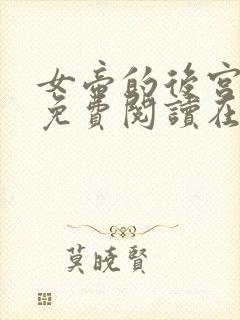 女帝的後宮
免費閱讀在
莫曉賢